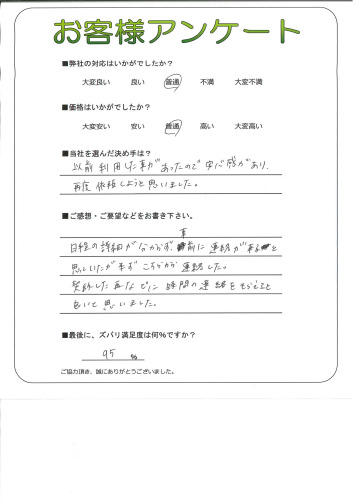 お客様アンケート
■弊社の対応はいかがでしたか?
大変良い 良い 普通 不満 大変不満
■価格はいかがでしたか?
大変安い 安い 普通 高い 大変高い
■当社を選んだ決め手は?
以前利用した事があったので安心感があり、
再度依頼しようと思いました。
■ご感想・ご要望などをお書き下さい。
日程の詳細が分からず、事前に連絡が来ると
思っていたが来ず こちらから連絡した。
契約した 時間の連絡をもらえると
良いと思いました。
■最後に、ズバリ満足度は何%ですか?
95 %
ご協力頂き、誠にありがとうございました。